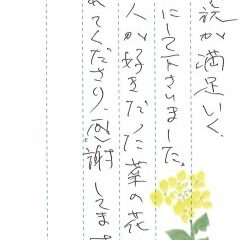 族が満足いく、
にして下さいました。
人が好きだった菜の花
れてくださり、感謝してます